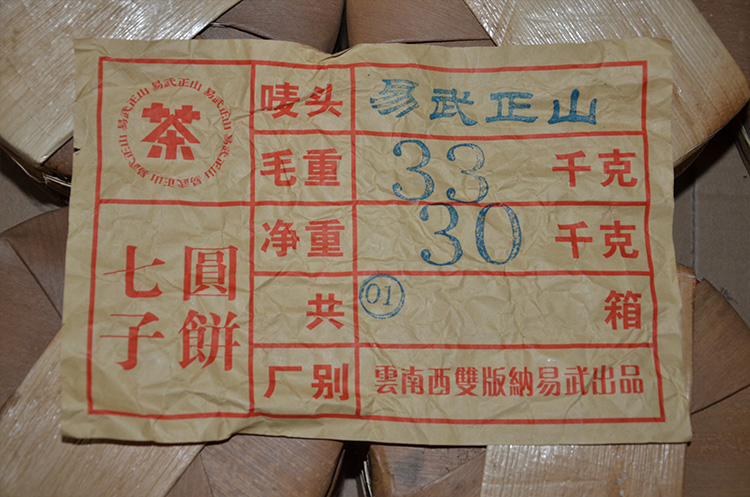 易武正山 易武正山 易武正山 易武正山 易武正山
茶
七子
圓餅
唛头 易武正山
毛重 33 千克
净重 30 千克
共 01 箱
厂别 雲南西雙版納易武出品